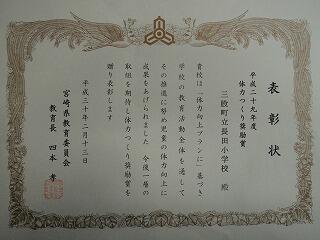 表彰状
平成二十九年度
体力つくり奨励賞
三股町立長田小学校 殿
貴校は「体力向上プラン」に基づき
学校の教育活動全体を通して
その推進に努め児童の体力向上に
成果をあげられました 今後一層の
取組を期待し体力つくり奨励賞を
贈り表彰します
平成三十年二月十三日
宮崎県教育委員会
教育長 四本 孝